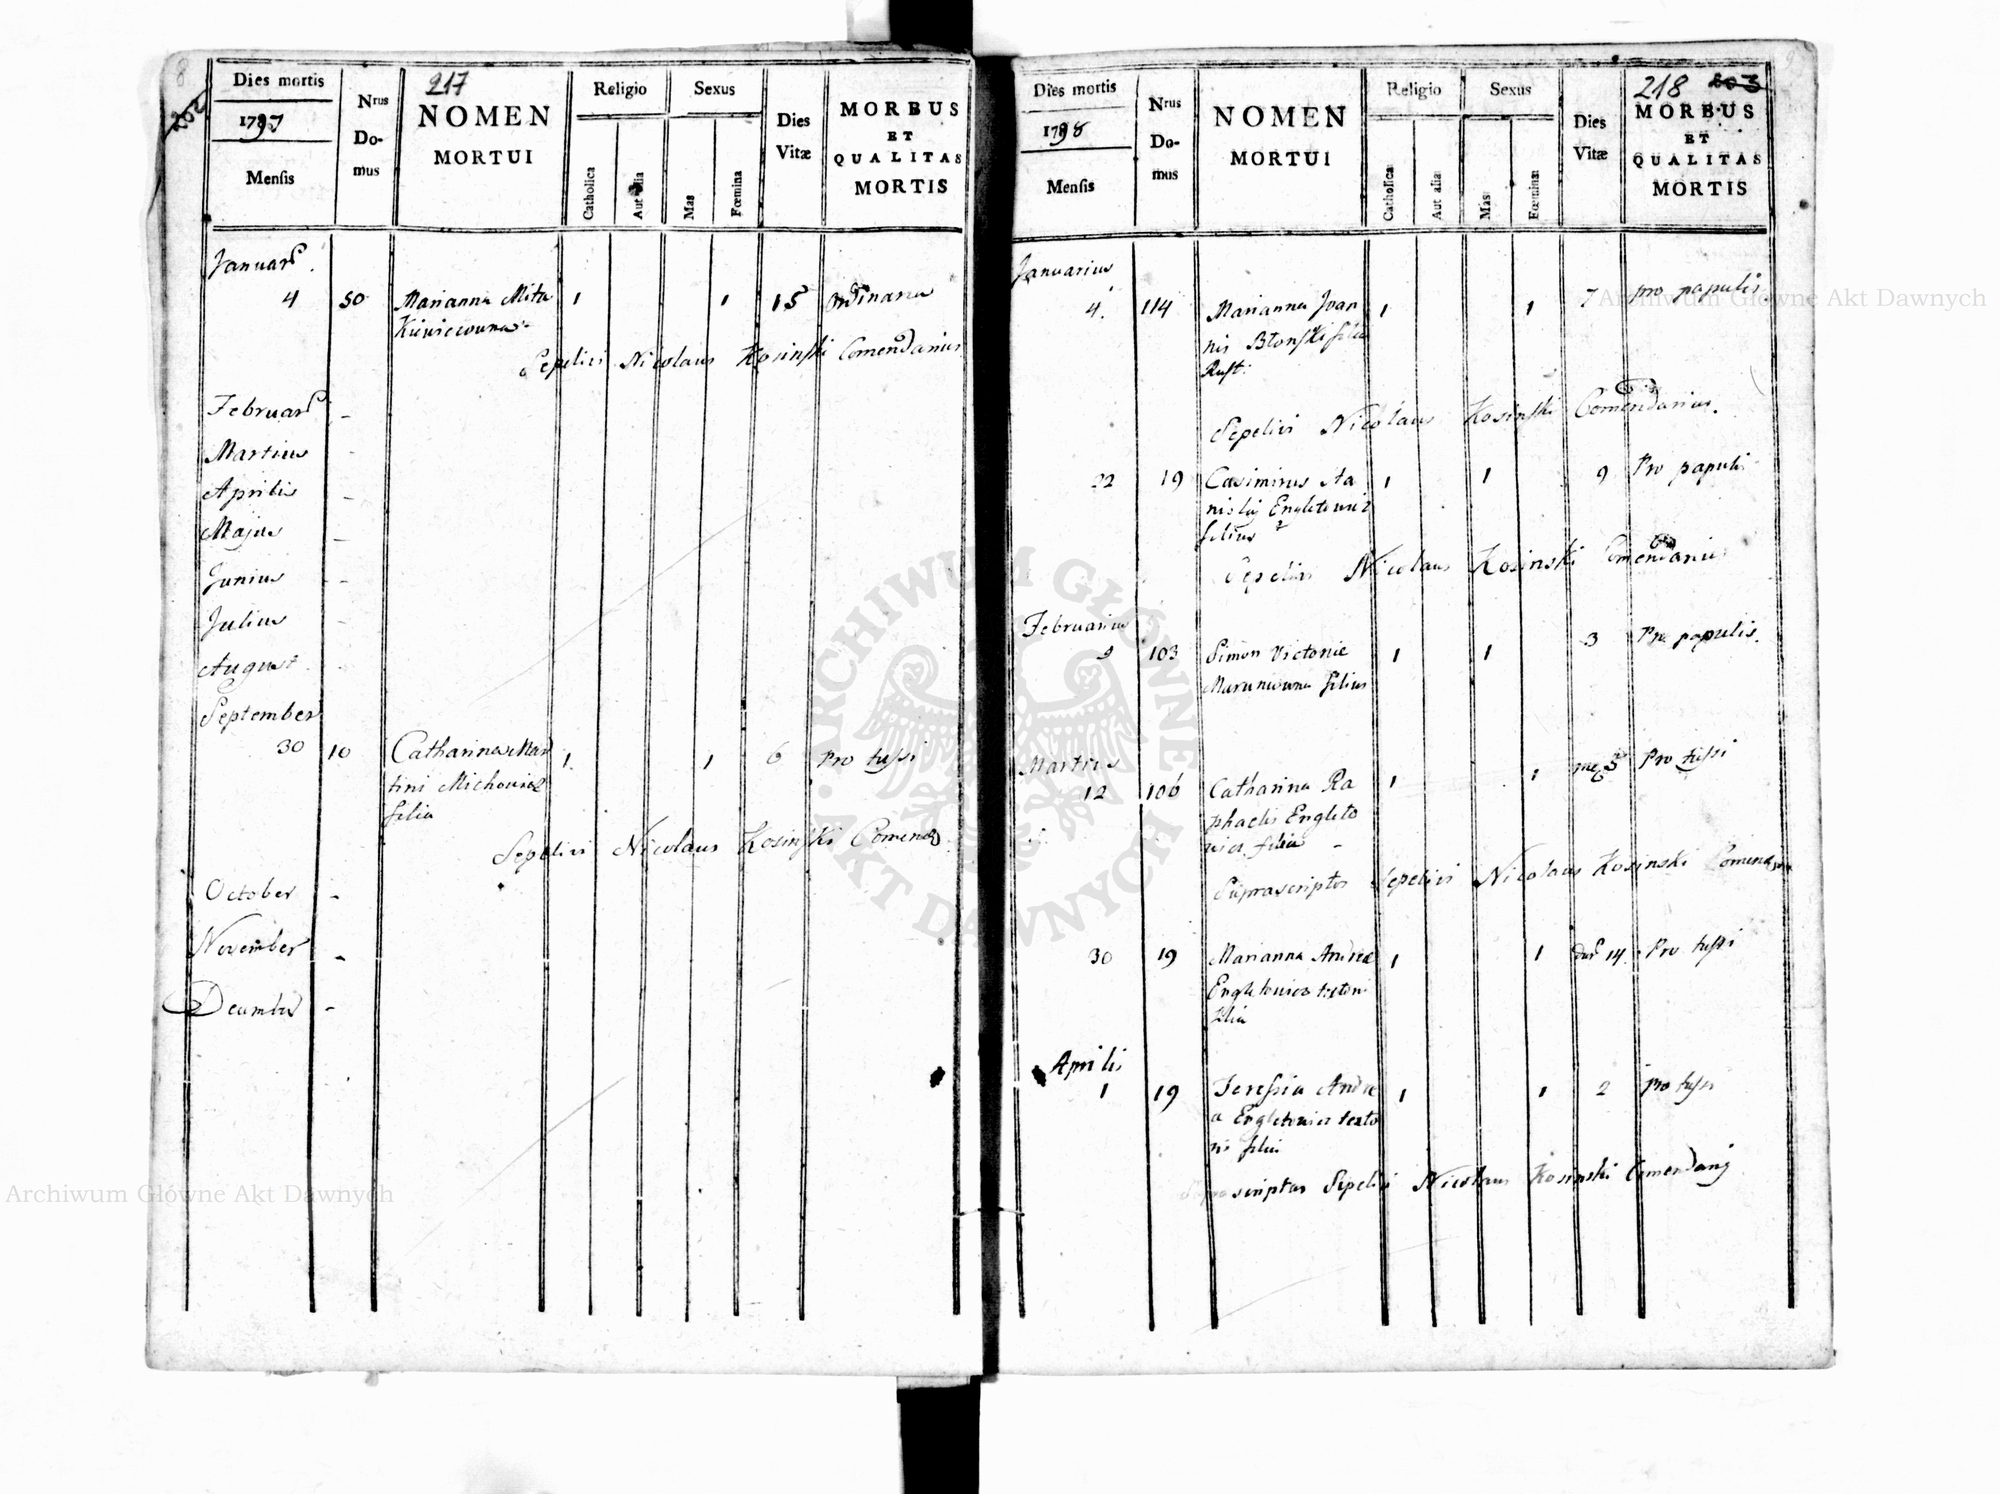 8
202
Dies mortis
1797
Mensis
Nrus
Do-
mus
217
NOMEN
MORTUI
Religio
Catholica
Aut alia
Sexus
Mas
Fœmina
Dies
Vitæ
MORBUS
ET
QUALITAS
MORTIS
Januar
4 50 Marianna 1 1 15 Ordinaria
Sepelivi Nicolaus Kosinski Comendarius
Februar -
Martius -
Aprilis -
Majus -
Junius -
Julius -
August -
September
30 10 Catharina Mar 1 1 6 Pro tussi
tini Michowicz
filia
Sepelivi Nicolaus Kosinski Comend
October -
November -
December -
9
Dies mortis
1798
Mensis
Nrus
Do-
mus
NOMEN
MORTUI
Religio
Catholica
Aut alia
Sexus
Mas
Fœminæ
Dies
Vitæ
218 203
MORBUS
ET
QUALITAS
MORTIS
Januarius
4. 114 Marianna Joan 1 1 7 pro papulis
nis Błonski filia
Rust.
Sepelivi Nicolaus Kosinski Comendarius.
22 19 Casimirus Sta 1 1 9 Pro papulis
nislaj Engletowicz
filius
Sepelivi Nicolaus Kosinski Comendarius
Februarius
9 103 Simon Victorie 1 1 3 Pro papulis.
filius
Martius
12 106 Catharina Ra 1 1 5 Pro tussi
phaelis Engleto
wicz filia -
Suprascriptos Sepelivi Nicolaus Kosinski
30 19 Marianna Andreæ 1 1 14. Pro tussi
Engletowicz
filia
Aprilis
1 19 Teressia Andre 1 1 2 pro tussi
a Engletowicz texto
ris filia
Suprascriptas Sepelivi Nicolaus Kosinski
ARCHIWUM GŁÓWNE AKT DAWNYCH
Archiwum Główne Akt Dawnych
Archiwum Główne Akt Dawnych